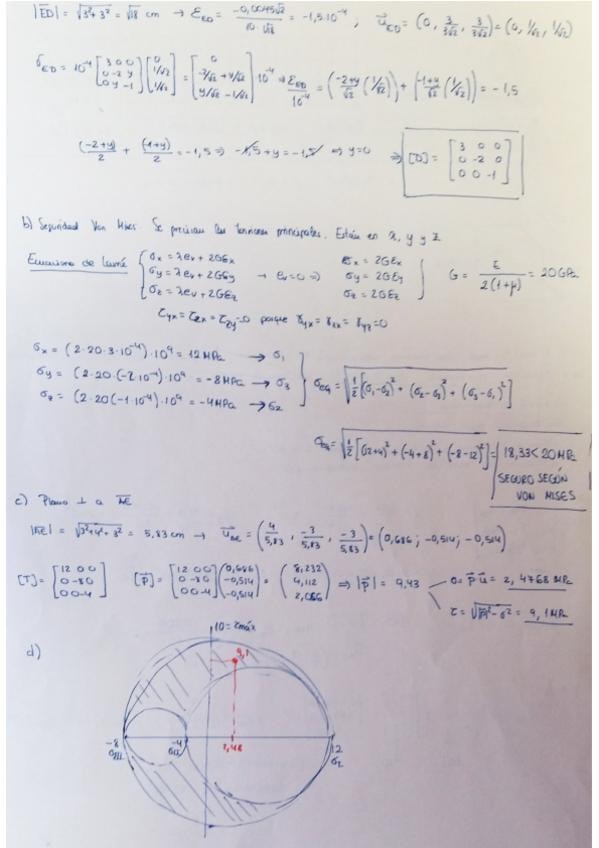 |ED| = √(3²+3²) = √18 cm → ε_ED = -0,0045√2 / 10·√18 = -1,5·10⁻⁴ ; u_ED = (0, 3/3√2, 3/3√2) = (0, 1/√2, 1/√2)
σ_ED = 10⁻⁴ [3 0 0; 0 -2 y; 0 y -1] [0; 1/√2; 1/√2] = [0; -2/√2 + y/√2; y/√2 - 1/√2] · 10⁻⁴ ⇒ ε_ED/10⁻⁴ = (-2+y/√2 (1/√2)) + (-1+y/√2 (1/√2)) = -1,5
(-2+y)/2 + (-1+y)/2 = -1,5 ⇒ -1,5 + y = -1,5 ⇒ y=0 ⇒ [D] = [3 0 0; 0 -2 0; 0 0 -1]
b) Seguridad Von Mises. Se precisan las tensiones principales. Están en x, y y z
Ecuaciones de Lamé { σx = λev + 2Gεx
σy = λev + 2Gεy → ev = 0 ⇒
σz = λev + 2Gεz
σx = 2Gεx
σy = 2Gεy
σz = 2Gεz }
G = E / 2(1+μ) = 20 GPa
τyx = τzx = τzy = 0 porque γyx = γzx = γyz = 0
σx = (2·20·3·10⁻⁴)·10⁹ = 12 MPa → σ1
σy = (2·20·(-2·10⁻⁴)·10⁹ = -8 MPa → σ3
σz = (2·20(-1·10⁻⁴)·10⁹ = -4 MPa → σ2
σeq = √(1/2 [(σ1-σ2)² + (σ2-σ3)² + (σ3-σ1)²])
σeq = √(1/2 [(12+4)² + (-4+8)² + (-8-12)²]) = 18,33 < 20 MPa
SEGURO SEGÚN
VON MISES
c) Plano ⊥ a AE
|AE| = √(3²+4²+3²) = 5,83 cm → u_AE = (4/5,83, -3/5,83, -3/5,83) = (0,686; -0,514; -0,514)
[T] = [12 0 0; 0 -8 0; 0 0 -4] [p] = [12 0 0; 0 -8 0; 0 0 -4] (0,686; -0,514; -0,514) = (8,232; 4,112; 2,056) ⇒ |p| = 9,43
σ = p u = 2,4768 MPa
τ = √(|p|² - σ²) = 9,1 MPa
d)
10 = τmáx
9,1
-8
σIII
-4
σII
2,48
12
σI